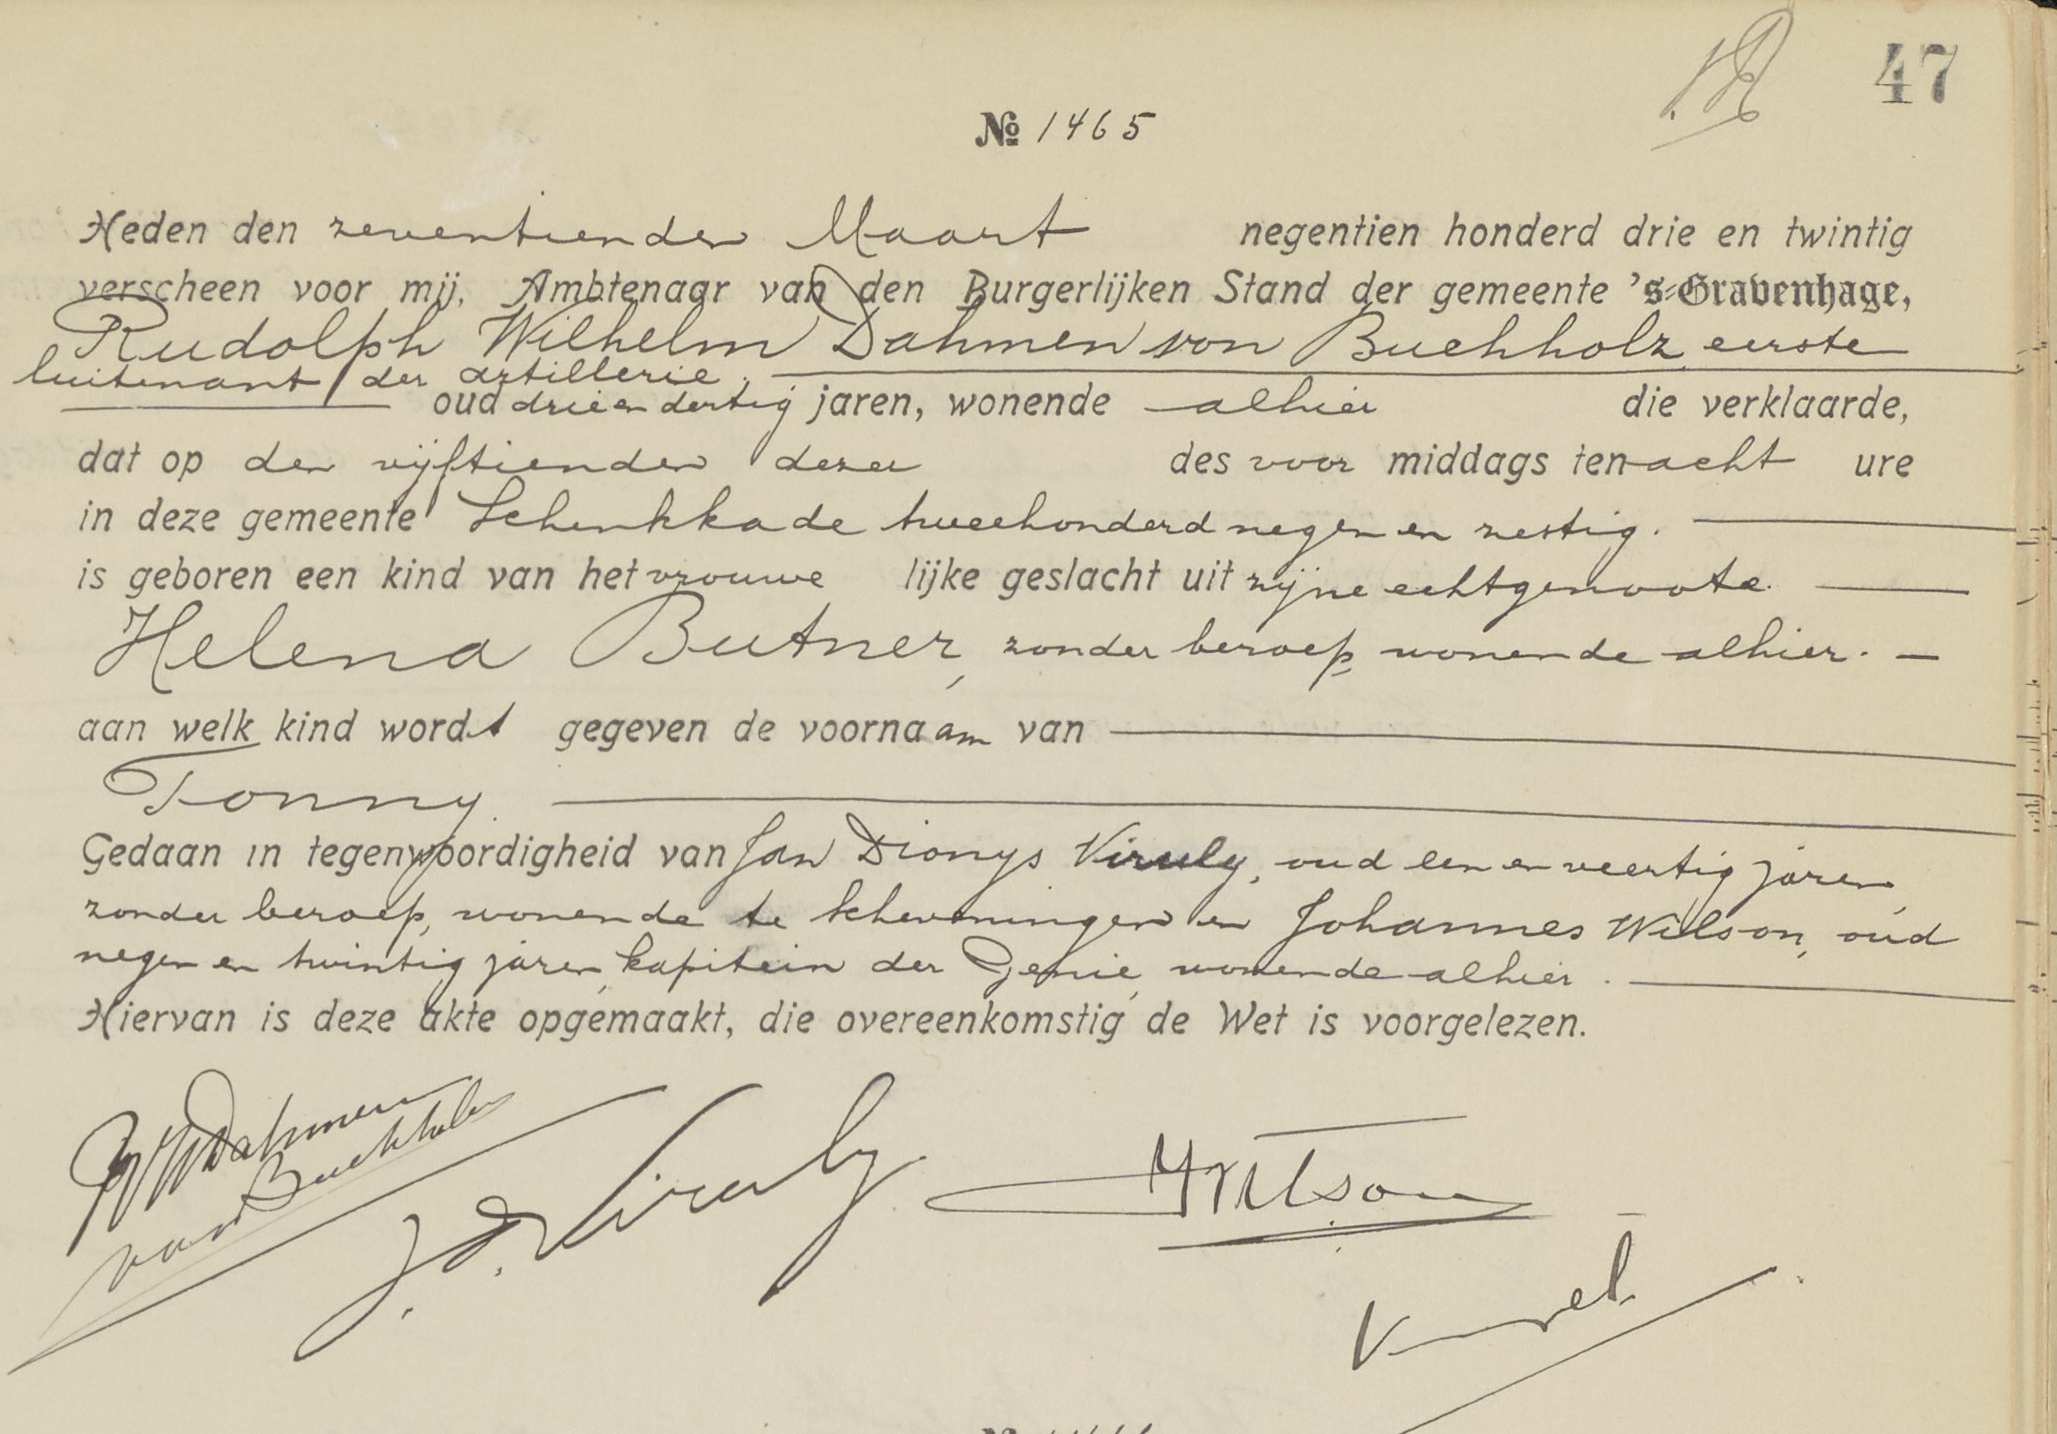 47
№ 1465
Heden den zeventienden Maart negentien honderd drie en twintig
verscheen voor mij, Ambtenaar van den Burgerlijken Stand der gemeente 's-Gravenhage,
Rudolph Wilhelm Dahmen von Buchholz, eerste
luitenant der artillerie,
oud drie en dertig jaren, wonende alhier die verklaarde,
dat op den vijftienden dezer des voor middags ten acht ure
in deze gemeente Schenkkade tweehonderd negen en zestig.
is geboren een kind van het vrouwe lijke geslacht uit zijne echtgenoote
Helena Butner, zonder beroep, wonende alhier.
aan welk kind wordt gegeven de voornaam van
Tonny.
Gedaan in tegenwoordigheid van Jan Dionys Viruly, oud een en veertig jaren,
zonder beroep, wonende te Scheveningen en Johannes Wilson, oud
negen en twintig jaren, kapitein der Genie, wonende alhier.
Hiervan is deze akte opgemaakt, die overeenkomstig de Wet is voorgelezen.
RWDahmen
von Buchholz
J. D. Viruly
JWilson